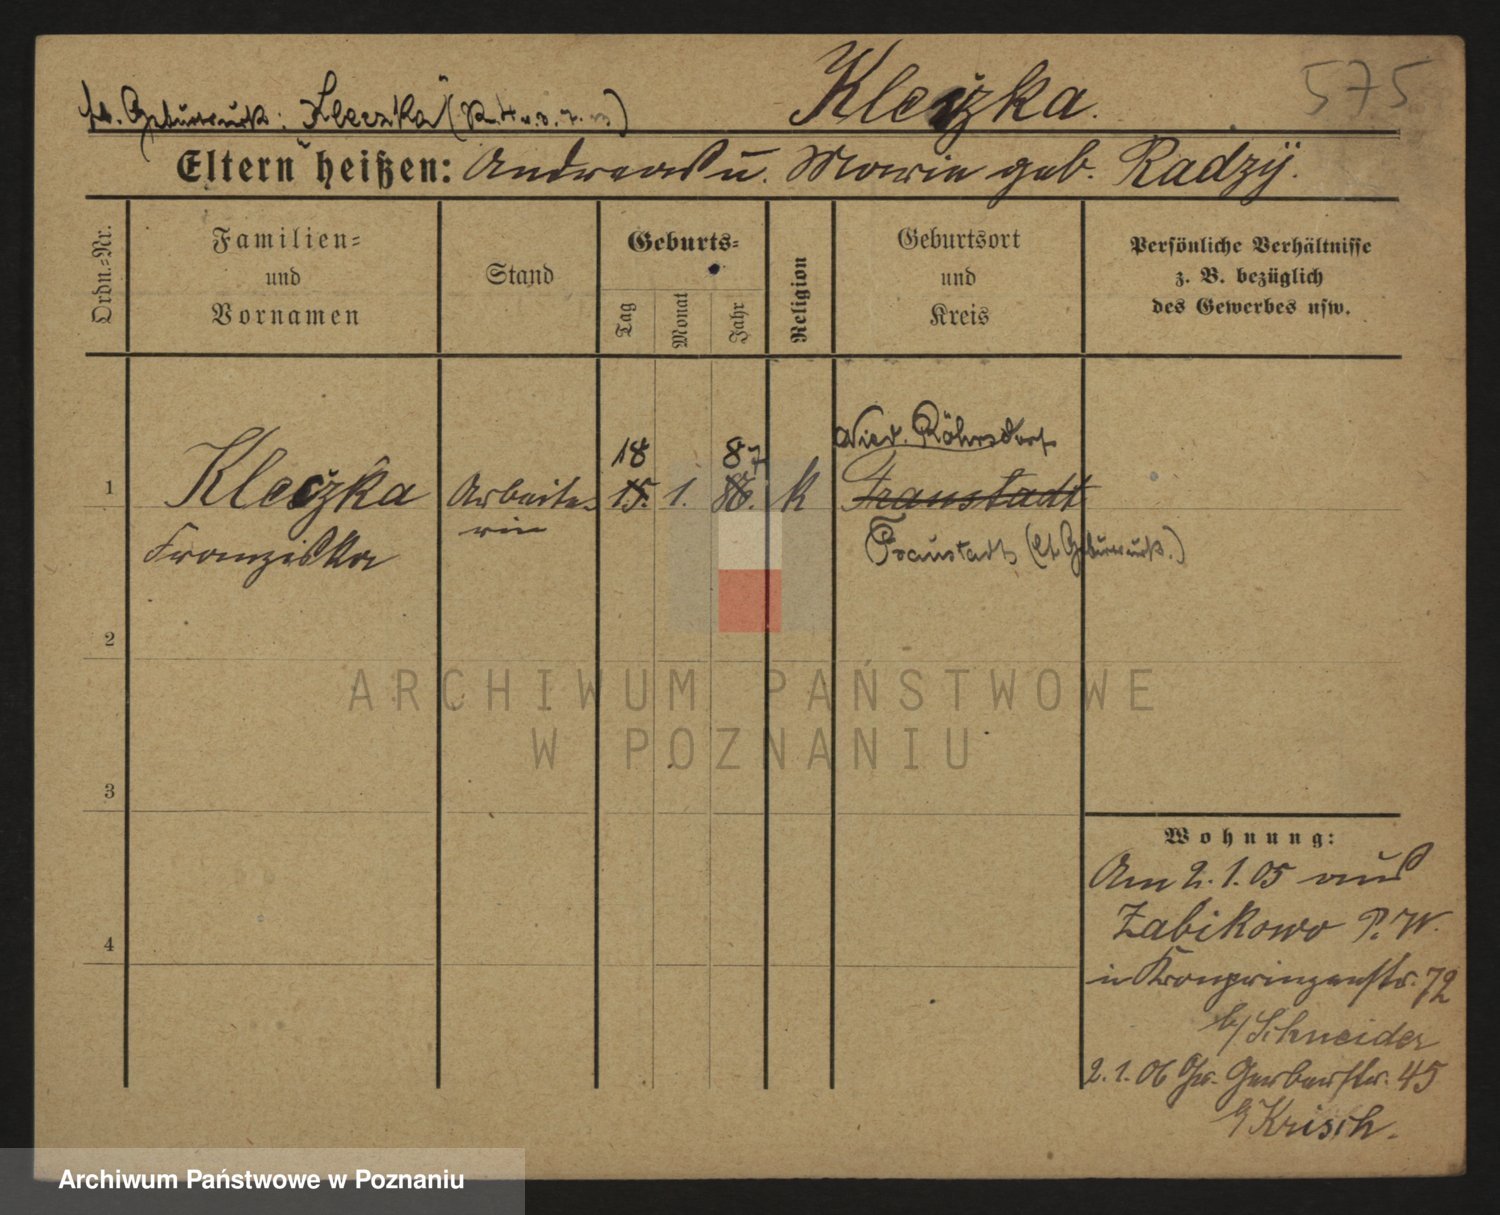 575
Kleczka.
lt. Geburturk: „Kleczka“
Eltern heißen: Andreas u. Maria geb. Radzÿ.
Ordn.-Nr.
Familien-
und
Vornamen
Stand
Geburts-
Tag
Monat
Jahr
Religion
Geburtsort
und
Kreis
Persönliche Verhältnisse
z. B. bezüglich
des Gewerbes usw.
Nied. Röhrsdorf
18 87
1 Kleczka Arbeite- 15. 1. 86. k Fraustadt
Franziska rin
Fraustadt (lt. Geburturk.)
2
3
4
ARCHIWUM PAŃSTWOWE
W POZNANIU
Wohnung:
Am 2.1.05 aus
Zabikowo P.W.
in Kronprinzenstr. 72
b/ Schneider
2.1.06 Gr. Gerberstr. 45
b/ Krisch.
Archiwum Państwowe w Poznaniu